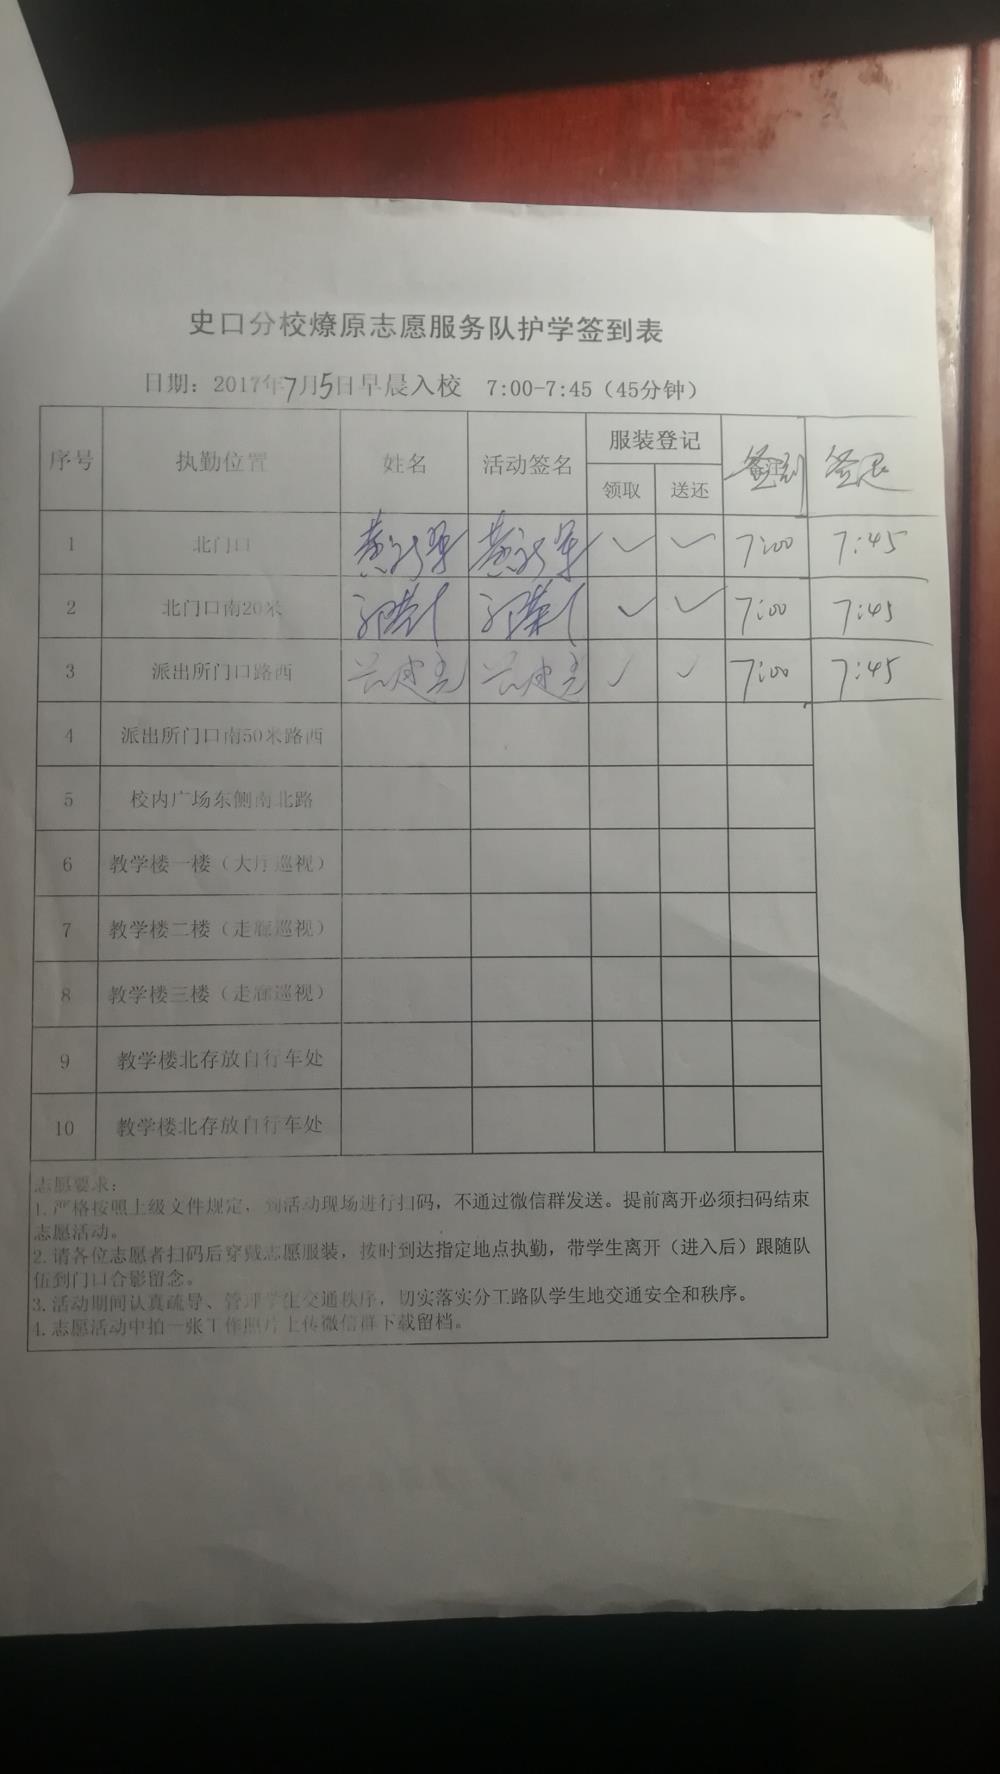 史口分校燎原志愿服务队护学签到表
日期：2017年7月5日早晨入校 7:00-7:45（45分钟）
序号 执勤位置 姓名 活动签名 服装登记 签到 签退
领取 送还
1 北门口 ✓ ✓ 7:00 7:45
2 北门口南20米 ✓ ✓ 7:00 7:45
3 派出所门口路西 ✓ ✓ 7:00 7:45
4 派出所门口南50米路西
5 校内广场东侧南北路
6 教学楼一楼（大厅巡视）
7 教学楼二楼（走廊巡视）
8 教学楼三楼（走廊巡视）
9 教学楼北存放自行车处
10 教学楼北存放自行车处
志愿要求：
1. 严格按照上级文件规定，到活动现场进行扫码，不通过微信群发送。提前离开必须扫码结束
志愿活动。
2. 请各位志愿者扫码后穿戴志愿服装，按时到达指定地点执勤，带学生离开（进入后）跟随队
伍到门口合影留念。
3. 活动期间认真疏导、管理学生交通秩序，切实落实分工路队学生地交通安全和秩序。
4. 志愿活动中拍一张工作照片上传微信群下载留档。